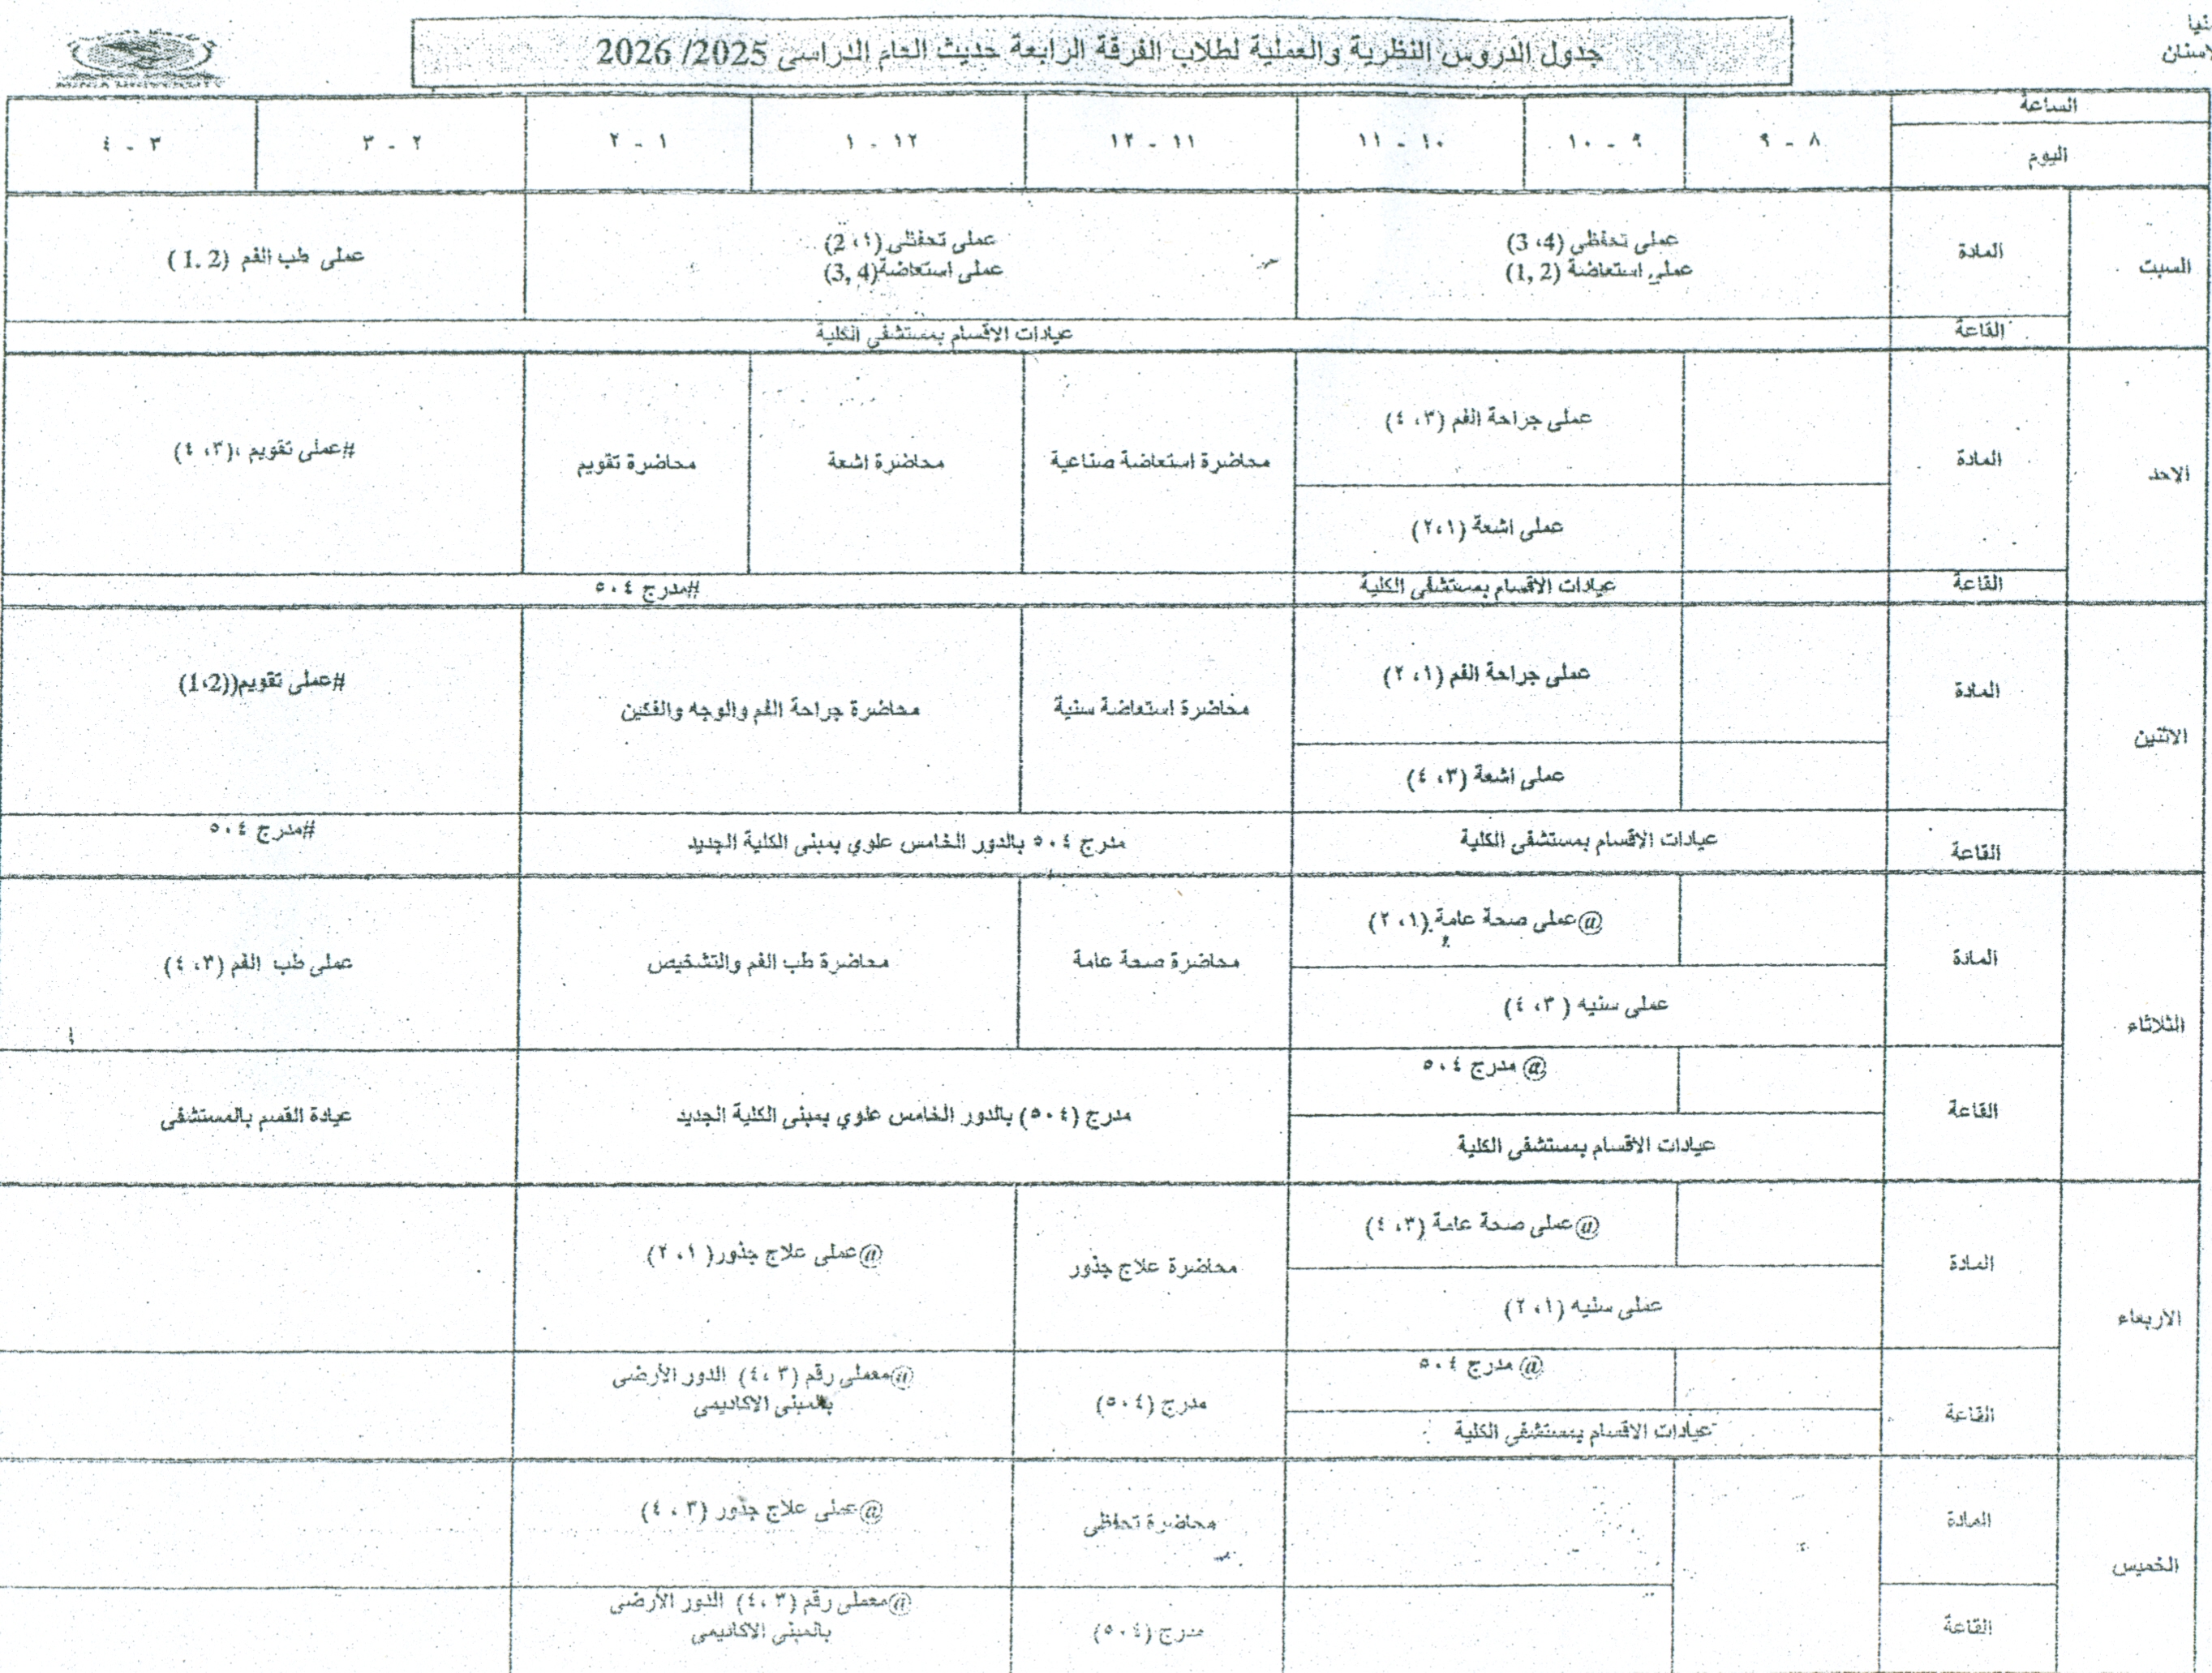 نيا
اسنان
جدول الدروس النظرية والعملية لطلاب الفرقة الرابعة حديث العام الدراسى 2025/ 2026
الساعة
اليوم
٨ - ٩
٩ - ١٠
١٠ - ١١
١١ - ١٢
١٢ - ١
١ - ٢
٢ - ٣
٣ - ٤
السبت
المادة
عملى تحفظى (4، 3)
عملى استعاضة (2 ,1)
عملى تحفظى (١، 2)
عملى استعاضة(4 ,3)
عملى طب الفم (2 .1)
القاعة
عيادات الاقسام بمستشفى الكلية
الاحد
المادة
عملى جراحة الفم (٣، ٤)
عملى اشعة (٢،١)
محاضرة استعاضة صناعية
محاضرة اشعة
محاضرة تقويم
#عملى تقويم ،(٣، ٤)
القاعة
عيادات الاقسام بمستشفى الكلية
#مدرج ٥٠٤
الاثنين
المادة
عملى جراحة الفم (١، ٢)
عملى اشعة (٣، ٤)
محاضرة استعاضة سنية
محاضرة جراحة الفم والوجه والفكين
#عملى تقويم((1،2)
القاعة
عيادات الاقسام بمستشفى الكلية
مدرج ٥٠٤ بالدور الخامس علوي بمبنى الكلية الجديد
#مدرج ٥٠٤
الثلاثاء
المادة
@عملى صحة عامة (١، ٢)
عملى سنيه ( ٣، ٤)
محاضرة صحة عامة
محاضرة طب الفم والتشخيص
عملى طب الفم (٣، ٤)
القاعة
@ مدرج ٥٠٤
عيادات الاقسام بمستشفى الكلية
مدرج (٥٠٤) بالدور الخامس علوي بمبنى الكلية الجديد
عيادة القسم بالمستشفى
الاربعاء
المادة
@عملى صحة عامة (٣، ٤)
عملى سنيه (١، ٢)
محاضرة علاج جذور
@عملى علاج جذور( ١، ٢)
القاعة
@ مدرج ٥٠٤
عيادات الاقسام بمستشفى الكلية
مدرج (٥٠٤)
@معملى رقم (٣ ،٤) الدور الأرضى
بالمبنى الاكاديمى
الخميس
المادة
محاضرة تحفظى
@عملى علاج جذور (٣ ، ٤)
القاعة
مدرج (٥٠٤)
@معملى رقم (٣ ،٤) الدور الأرضى
بالمبنى الاكاديمى